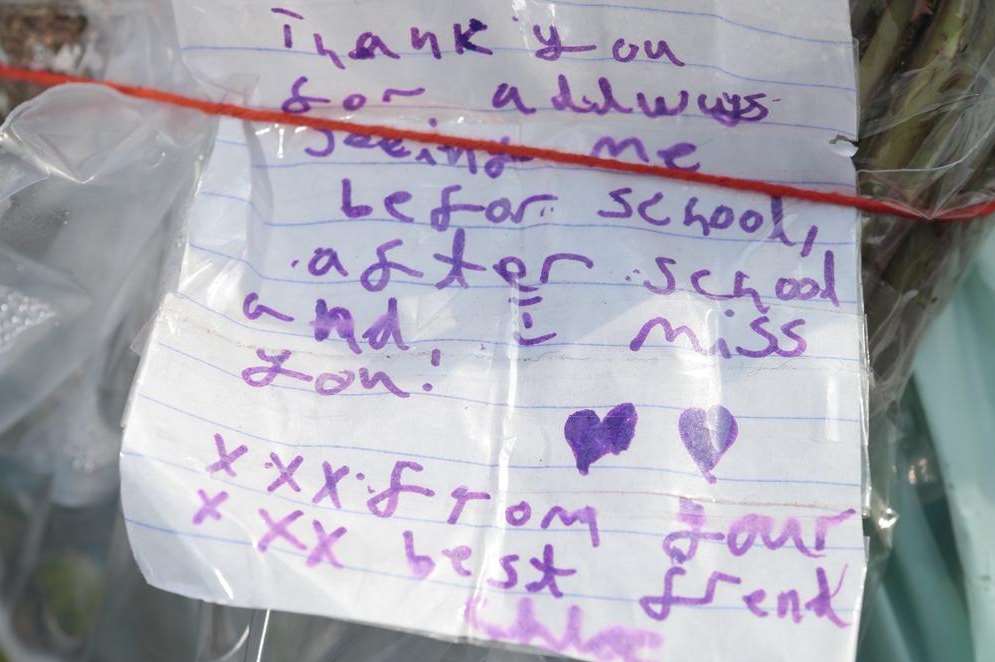 Thank you
for allways
seeing me
befor school,
after school
and I miss
you!
xxx from your
xxx best frend